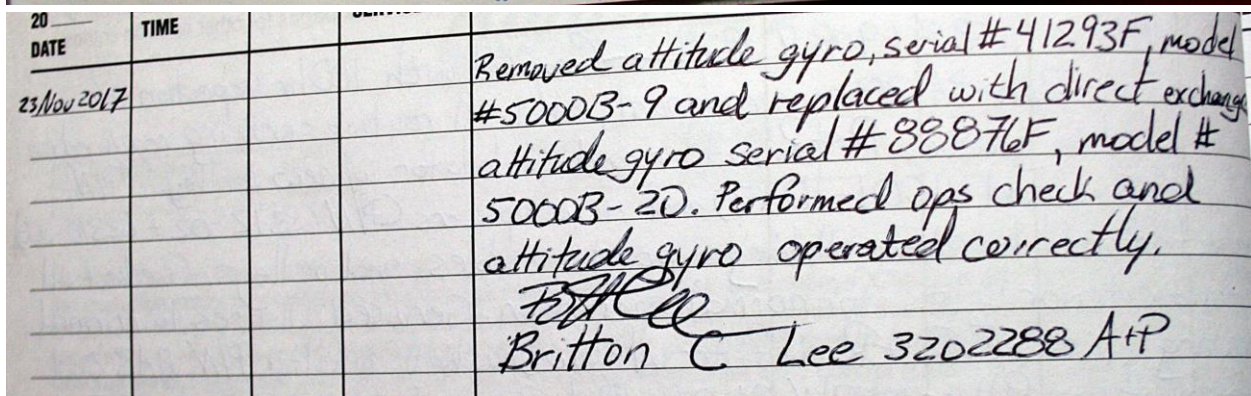 20
DATE
TIME
23 Nov 2017
Removed attitude gyro, serial # 41293F, model
#5000B-9 and replaced with direct exchange
attitude gyro serial # 88876F, model #
5000B-20. Performed ops check and
attitude gyro operated correctly.
Britton C Lee 3202288 A+P